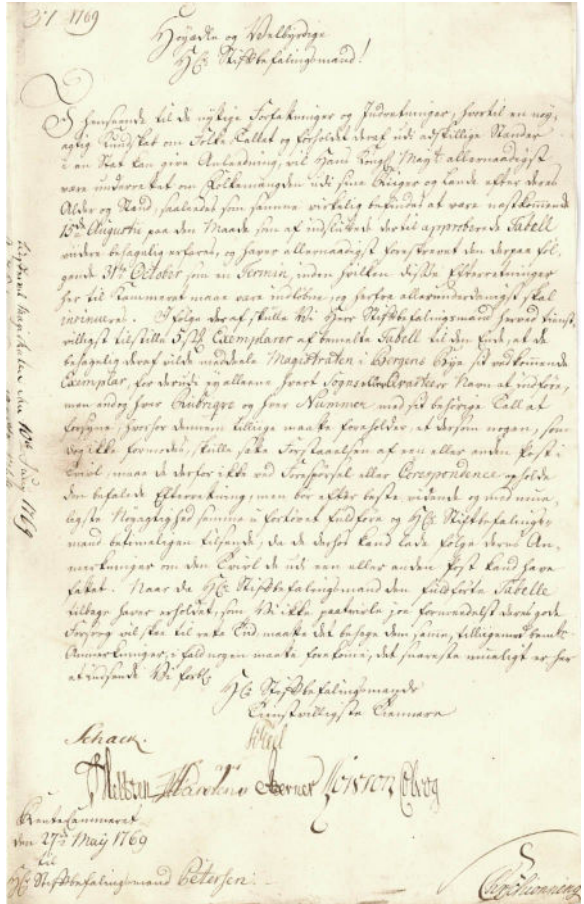 1769
Høyædle og Velbyrdige
Hr. Stiftbefalingsmand!
I henseende til de nyttige Forfatninger og Indretninger, hvortil en nøy-
agtig Kundskab om Folke Tallet og forholdet deraf udi adskillige Stænder
i en Stat kan give Anledning, vil Hans Kongl. Mayt. allernaadigst
være underrettet om Folkemængden udi sine Riiger og Lande efter deres
Alder og Stand, saaledes som samme virkelig befindes at være næstkommende
15de Augustii paa den Maade som af indsluttede dertil approberede Tabell
videre behagelig erfares, og haver allernaadigst foreskrevet den derpaa føl-
gende 31te October som en Termin, inden hvilken disse Efterretninger
her til Kammeret maae være indløbne, og herfra allerunderdanigst skal
insinueres. I følge deraf skulle Vi Herr Stiftbefalingsmand herved tienst-
villigst tilstille 5 Stk. Exemplarer af bemelte Tabell til den Ende, at de
behagelig deraf vilde meddeele Magistraten i Bergens Bye sit vedkommende
Exemplar, for derudi ey alleene hvert Sogns eller Qvarteers Navn at indføre,
men endog hver Rubrique og hver Nummer med sit behørige Tall at
forsyne, hvorfor dennem tillige maatte foreholdes, at dersom nogen, som
dog ikke formodes, skulle sætte Forstaaelsen af een eller anden Post i
Tvivl, maae de derfor ikke ved Forespørsel eller Corespondence opholde
den befalede Efterretning, men bør efter beste vidende og med muu-
ligste Nøyagtighed samme ufortøvet fuldføre og Hr. Stiftbefalings-
mand betimeligen tilsende, da de derhos kand lade følge deres An-
merkninger om den Tvivl de udi een eller anden Post kand have
fattet. Naar da Hr. Stiftbefalingsmand den fuldførte Tabelle
tilbage haver erholdet, som Vi ikke paatvivle joe formedelst deres gode
Forsorg vil skee til rette Tid, maatte det behage dem samme, tilligemed bemte
Anmerkninger, i fald nogen maatte forekomme, det snareste mueligt er her
at indsende Vi forbl.
Hr. Stiftbefalingsmands
Tienstvilligste Tiennere
Schack.
Rentekammeret
den 27de Maÿ 1769
til
Hr. Stiftbefalingsmand Petersen.